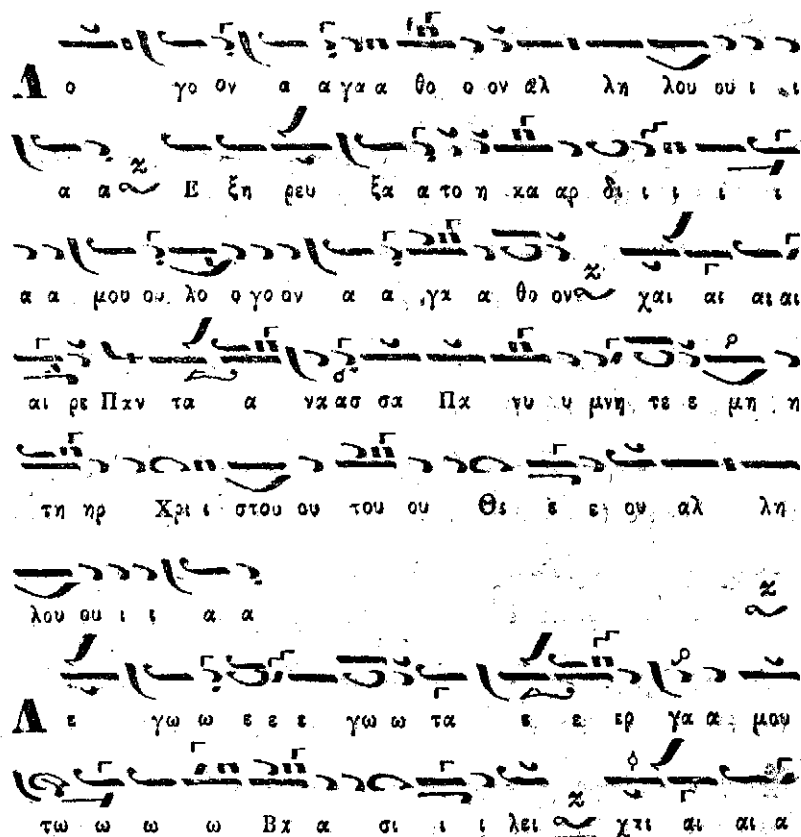 Λ ο γο ον α α γα α θο ο ον αλ λη λου ου ι ι
α α Ε ξη ρευ ξα α το η κα αρ δι ι ι ι ι
α α μου ου λο ο γο ον α α γα α θο ον χαι αι αι αι
αι ρε Παν τα α να ασ σα Πα νυ υ μνη τε ε μη η
τη ηρ Χρι ι στου ου του ου Θε ε ε ου αλ λη
λου ου ι ι α α
Λ ε γω ω ε ε ε γω ω τα ε ε ερ γα α μου
τω ω ω ω Βα α σι ι ι λει χαι αι αι α